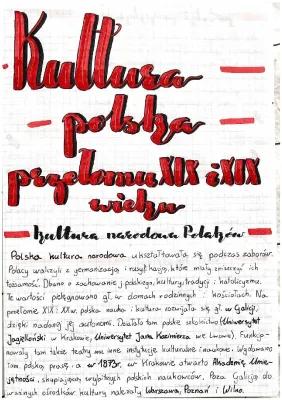 Kultura
polska
przełomu XIX i XIX
wieku
Kultura narodowa Polaków
Polska kultura narodowa ukształtowała się podczas zaborów.
Polacy walczyli z germanizacją i rusyfikacją, które miały zniszczyć ich
tożsamość. Dbano o zachowanie j. polskiego, kultury, tradycji i katolicyzmu.
Te wartości pielęgnowano gł. w domach rodzinnych i kościołach. Na
przełomie XIX i XXw. polska nauka i kultura rozwijała się gł. w Galicji,
dzięki nadanej jej autonomii. Działało tam polskie szkolnictwo (Uniwersytet
Jagielloński w Krakowie, Uniwersytet Jana Kazimierza we Lwowie). Funkcjo-
nowały tam także teatry oraz inne instytucje kulturalne i naukowe. Wydawano
tam polską prasę, a w 1873r. w Krakowie otwarto Akademię Umie-
jętności, skupiającą wybitnych polskich naukowców. Poza Galicją do
ważnych ośrodków kultury należały Warszawa, Poznań i Wilno.